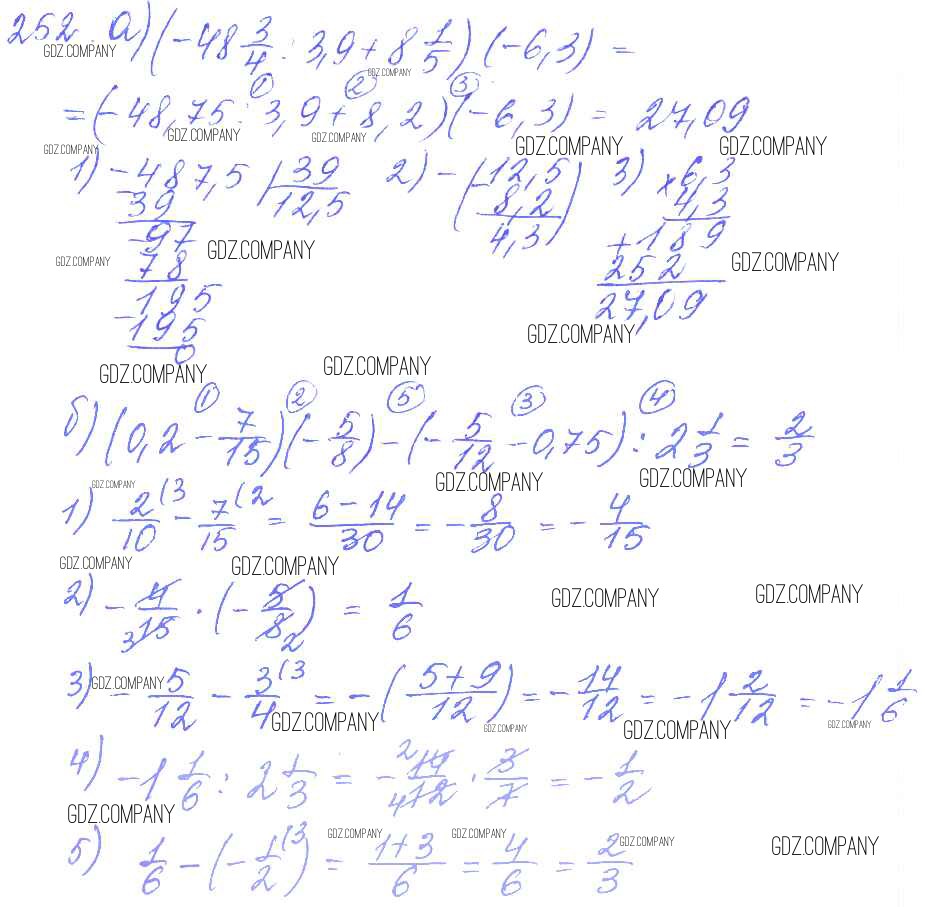 252. а) (-48 3/4 : 3,9 + 8 1/5) (-6,3) =
GDZ.COMPANY GDZ.COMPANY
① ② ③
= (-48,75 : 3,9 + 8,2)(-6,3) = 27,09
GDZ.COMPANY GDZ.COMPANY GDZ.COMPANY GDZ.COMPANY GDZ.COMPANY
1) -487,5 | 39 2) -(12,5 3) × 6,3
39 12,5 - 8,2 4,3
-97 4,3) + 189
GDZ.COMPANY
78 252 GDZ.COMPANY
GDZ.COMPANY
195 27,09
-195 GDZ.COMPANY
0
GDZ.COMPANY GDZ.COMPANY
① ② ⑤ ③ ④
б) (0,2 - 7/15)(-5/8) - (-5/12 - 0,75) : 2 1/3 = 2/3
GDZ.COMPANY GDZ.COMPANY GDZ.COMPANY
1) 2/10 (3 - 7/15 (2 = 6-14/30 = -8/30 = -4/15
GDZ.COMPANY GDZ.COMPANY
2) -4/15 3 · (-5/8 2) = 1/6
GDZ.COMPANY GDZ.COMPANY
3) -5/12 - 3/4 (3 = -(5+9/12) = -14/12 = -1 2/12 = -1 1/6
GDZ.COMPANY GDZ.COMPANY GDZ.COMPANY GDZ.COMPANY GDZ.COMPANY
4) -1 1/6 : 2 1/3 = - 2 14/12 4 · 3/7 = -1/2
GDZ.COMPANY
5) 1/6 - (-1/2 (3) = 1+3/6 = 4/6 = 2/3
GDZ.COMPANY GDZ.COMPANY GDZ.COMPANY GDZ.COMPANY